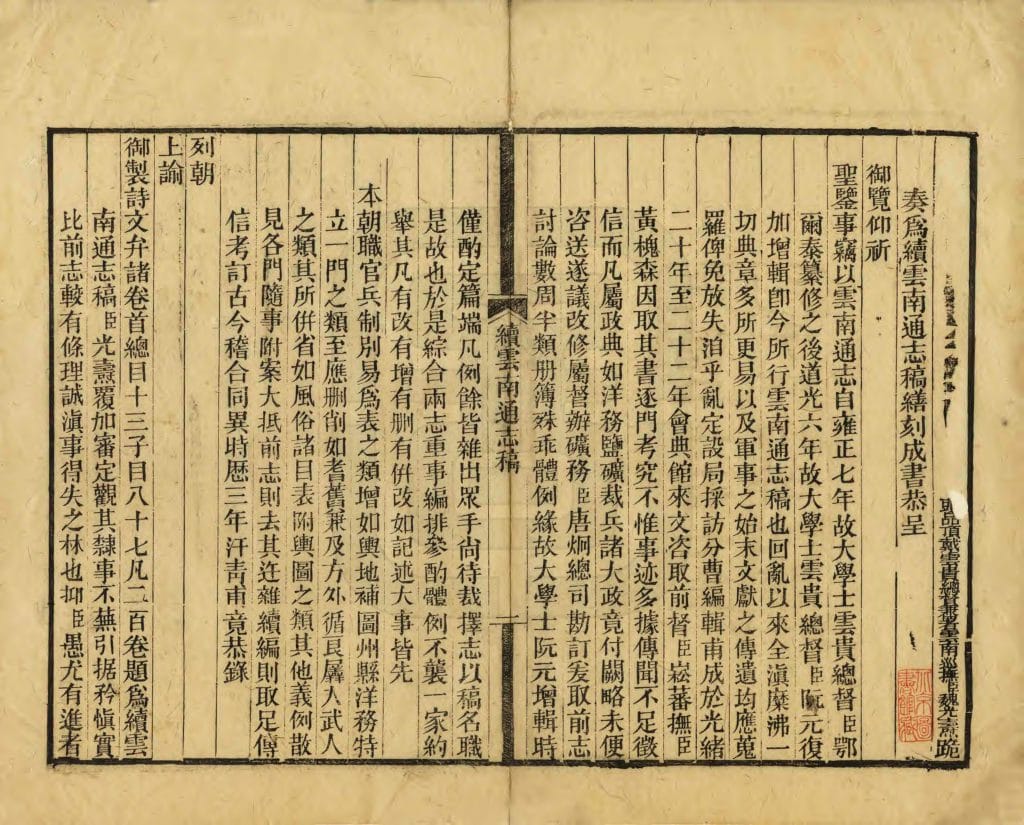 頭品頂戴雲貴總督兼署雲南巡撫臣魏光燾跪
奏爲續雲南通志稿繕刻成書恭呈
御覽仰祈
聖鑒事竊以雲南通志自雍正七年故大學士雲貴總督臣鄂
爾泰纂修之後道光六年故大學士雲貴總督臣阮元復
加增輯卽今所行雲南通志稿也回亂以來全滇糜沸一
切典章多所更易以及軍事之始末文獻之傳遺均應蒐
羅俾免放失洎乎亂定設局採訪分曹編輯甫成於光緒
二十年至二十二年會典館來文咨取前督臣崧蕃撫臣
黃槐森因取其書逐門考究不惟事迹多據傳聞不足徵
信而凡屬政典如洋務鹽礦裁兵諸大政竟付闕略未便
咨送遂議改修屬督辦礦務臣唐炯總司勘訂爰取前志
討論數周半類册簿殊乖體例緣故大學士阮元增輯時
續雲南通志稿
一
僅酌定篇端凡例餘皆雜出眾手尙待裁擇志以稿名職
是故也於是綜合兩志重事編排參酌體例不襲一家約
舉其凡有改有增有删有併改如記述大事皆先
本朝職官兵制別易爲表之類增如輿地補圖州縣洋務特
立一門之類至應删削如耆舊兼及方外循良羼人武人
之類其所併省如風俗諸目表附輿圖之類其他義例散
見各門隨事附案大抵前志則去其迕雜續編則取足傳
信考訂古今稽合同異時歷三年汗靑甫竟恭錄
列朝
上諭
御製詩文弁諸卷首總目十三子目八十七凡二百卷題爲續雲
南通志稿臣光燾覆加審定觀其隸事不蕪引据矜愼實
比前志較有條理誠滇事得失之林也抑臣愚尤有進者